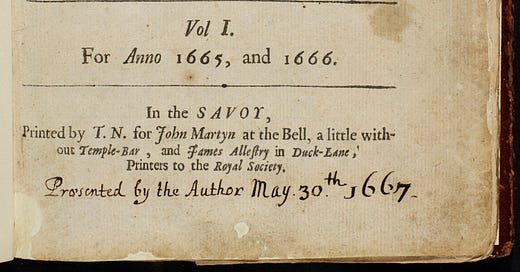 Vol I.
For Anno 1665, and 1666.
In the SAVOY,
Printed by T. N. for John Martyn at the Bell, a little with-
out Temple-Bar, and James Allestry in Duck-Lane,
Printers to the Royal Society.
Presented by the Author May. 30.th 1667.